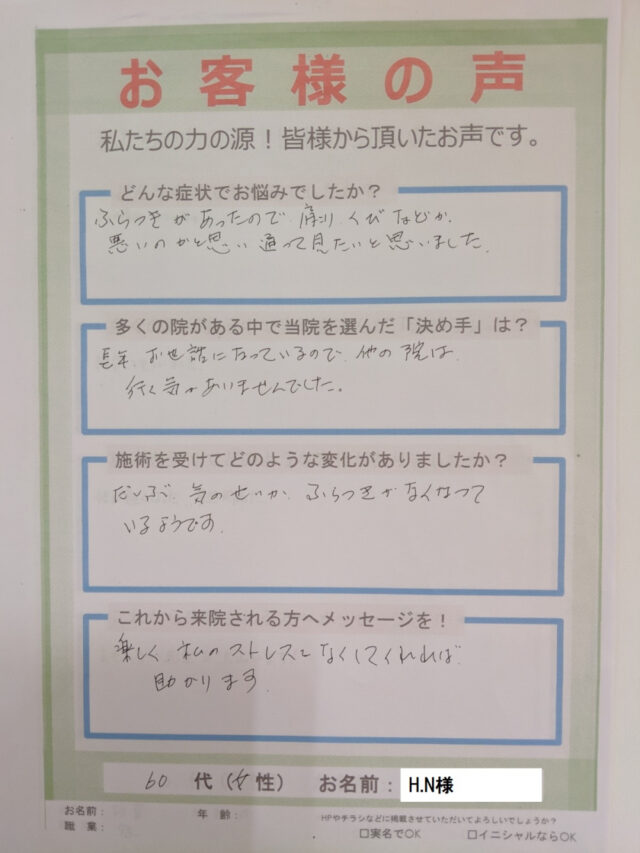 お客様の声
私たちの力の源！皆様から頂いたお声です。
どんな症状でお悩みでしたか？
ふらつきがあったので、肩こり、くびなどが、
悪いのかと思い通って見たいと思いました。
多くの院がある中で当院を選んだ「決め手」は？
長年、お世話になっているので、他の院は、
行く気がありませんでした。
施術を受けてどのような変化がありましたか？
だいぶ、気のせいか、ふらつきがなくなって
いるようです。
これから来院される方へメッセージを！
楽しく、私のストレスをなくしてくれれば、
助かります。
60代（女性） お名前：H.N様
お名前：
年齢：
職業：
HPやチラシなどに掲載させていただいてよろしいでしょうか？
□実名でOK □イニシャルならOK